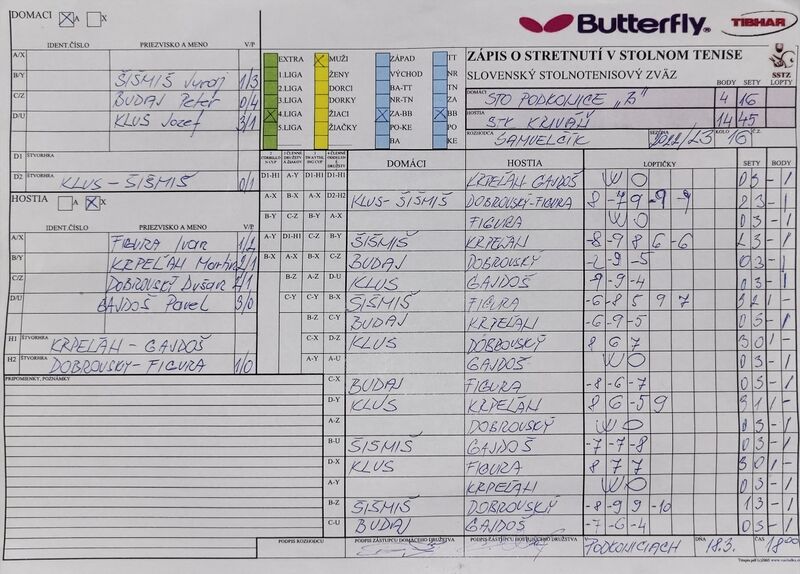 DOMACI A X
IDENT.ČÍSLO PRIEZVISKO A MENO V/P
A/X
B/Y ŠIŠMIŠ Juraj 1/3
C/Z BUDAJ Peter 0/4
D/U KLUS Jozef 3/1
D1 ŠTVORHRA
D2 ŠTVORHRA KLUS - ŠIŠMIŠ 0/1
HOSTIA A X
IDENT.ČÍSLO PRIEZVISKO A MENO V/P
A/X FIGURA Ivan 1/2
B/Y KRPEĽAN Martin 2/1
C/Z DOBROVSKÝ Dušan /1
D/U GAJDOŠ Pavel 3/0
H1 ŠTVORHRA KRPEĽAN - GAJDOŠ
H2 ŠTVORHRA DOBROVSKÝ - FIGURA 1/0
PRIPOMIENKY, POZNÁMKY
EXTRA MUŽI ZÁPAD TT
1.LIGA ŽENY VÝCHOD NR
2.LIGA DORCI BA-TT TN
3.LIGA DORKY NR-TN ZA
4.LIGA ŽIACI ZA-BB BB
5.LIGA ŽIAČKY PO-KE PO
BA KE
Butterfly TIBHAR
ZÁPIS O STRETNUTÍ V STOLNOM TENISE
SLOVENSKÝ STOLNOTENISOVÝ ZVÄZ SSTZ
BODY SETY LOPTY
DOMÁCI STO PODKONICE "B" 4 16
HOSTIA STK KRIVÁŇ 14 45
ROZHODCA SAMUELČÍK SEZÓNA 2022/23 KOLO 16 Č.Z.
DOMÁCI HOSTIA LOPTIČKY SETY BODY
D1-H1 A-Y D1-H1 D1-H1 KRPEĽAN-GAJDOŠ WO 0 3 - 1
A-X B-X A-X D2-H2 KLUS-ŠIŠMIŠ DOBROVSKÝ-FIGURA 8 -7 9 -9 -9 2 3 - 1
B-Y C-Z B-Y A-X FIGURA WO 0 3 - 1
A-Y D1-H1 C-Z B-Y ŠIŠMIŠ KRPEĽAN -8 -9 8 6 -6 2 3 - 1
B-X A-X A-Y C-Z BUDAJ DOBROVSKÝ -2 -9 -5 0 3 - 1
B-Z A-Z D-U KLUS GAJDOŠ -9 -9 -4 0 3 - 1
C-Y C-Y B-X ŠIŠMIŠ FIGURA -6 -8 5 9 7 3 2 1 -
B-Z C-Y BUDAJ KRPEĽAN -6 -9 -5 0 3 - 1
C-X D-Z KLUS DOBROVSKÝ 8 6 7 3 0 1 -
A-Y A-U GAJDOŠ WO 0 3 - 1
C-X BUDAJ FIGURA -8 -6 -7 0 3 - 1
D-Y KLUS KRPEĽAN 8 6 -5 9 3 1 1 -
A-Z DOBROVSKÝ WO 0 3 - 1
B-U ŠIŠMIŠ GAJDOŠ -7 -7 -8 0 3 - 1
D-X KLUS FIGURA 8 7 7 3 0 1 -
A-Y KRPEĽAN WO 0 3 - 1
B-Z ŠIŠMIŠ DOBROVSKÝ -8 -9 9 -10 1 3 - 1
C-U BUDAJ GAJDOŠ -7 -6 -4 0 3 - 1
PODPIS ROZHODCU PODPIS ZÁSTUPCU DOMÁCEHO DRUŽSTVA PODPIS ZÁSTUPCU HOSŤUJÚCEHO DRUŽSTVA V PODKONICIACH DŇA 18.3. ČAS 18:00